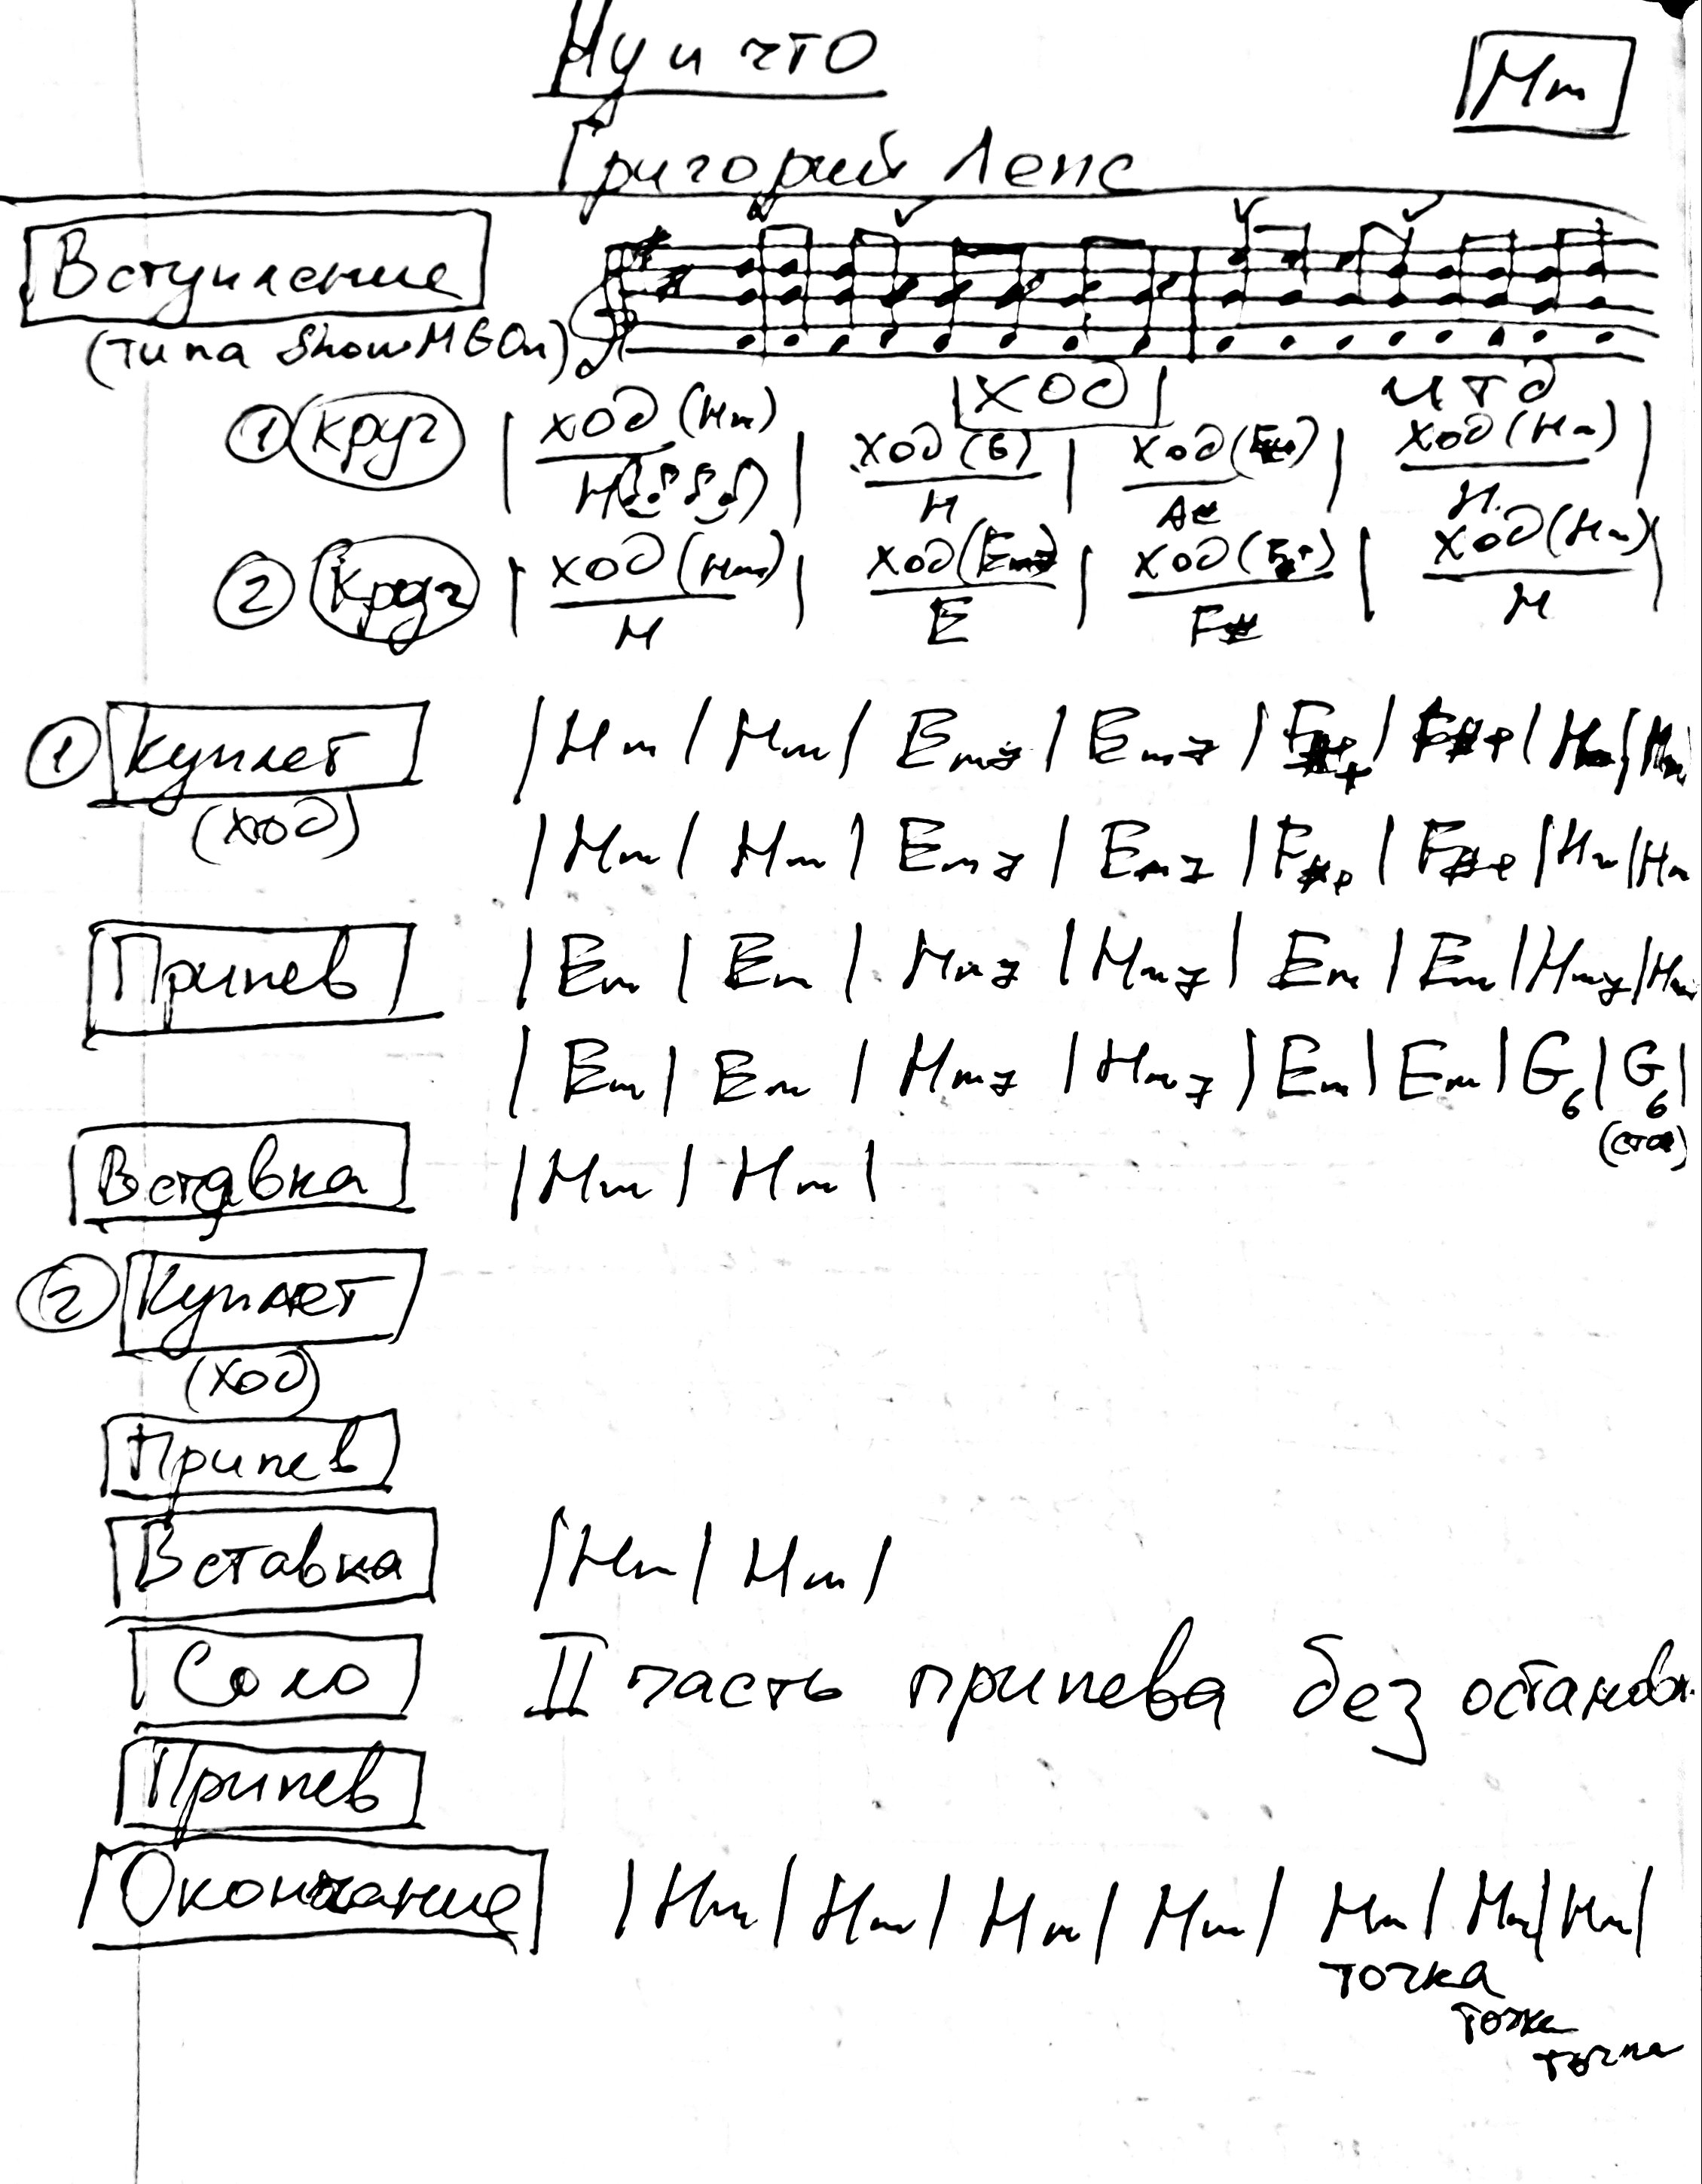 Ну и что
Hm
Григорий Лепс
Вступление
(типа Show M G On)
ход итд
① круг | ход (Hm) / H | ход (G) / H | ход / A# | ход (Hm) / H |
② круг | ход (Hm) / H | ход (Em7) / E | ход / F# | ход (Hm) / H |
① куплет | Hm | Hm | Em7 | Em7 | F#+ | F#+ | Hm | Hm
(ход)
| Hm | Hm | Em7 | Em7 | F#+ | F#+ | Hm | Hm
Припев | Em | Em | Hm7 | Hm7 | Em | Em | Hm7 | Hm
| Em | Em | Hm7 | Hm7 | Em | Em | G6 | G6 |
(стоп)
Вставка | Hm | Hm |
② Куплет
(ход)
Припев
Вставка | Hm | Hm |
Соло II часть припева без останов.
Припев
Окончание | Hm | Hm | Hm | Hm | Hm | Hm | Hm |
точка
точка
точка